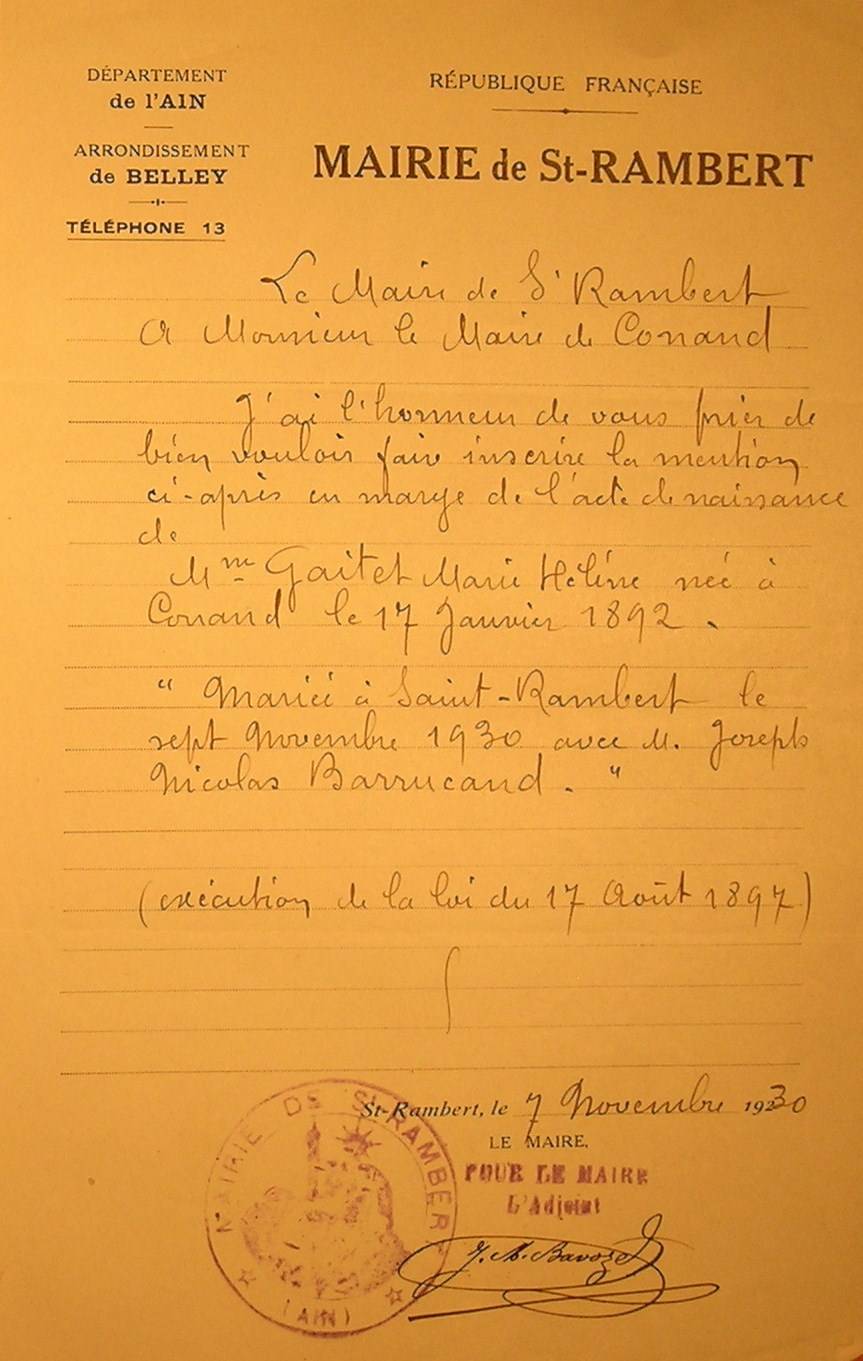 DÉPARTEMENT
de l'AIN
ARRONDISSEMENT
de BELLEY
TÉLÉPHONE 13
RÉPUBLIQUE FRANÇAISE
MAIRIE de St-RAMBERT
Le Maire de St Rambert
A Monsieur le Maire de Conand
J'ai l'honneur de vous prier de
bien vouloir faire inscrire la mention
ci-après en marge de l'acte de naissance
de
Mme Gaitet Marie Hélène née à
Conand le 17 Janvier 1892.
" Mariée à Saint-Rambert le
sept Novembre 1930 avec M. Joseph
Nicolas Barrucand. "
(exécution de la loi du 17 Août 1897)
St-Rambert, le 7 Novembre 1930
LE MAIRE,
POUR LE MAIRE
L'Adjoint
MAIRIE DE St RAMBERT
(AIN)